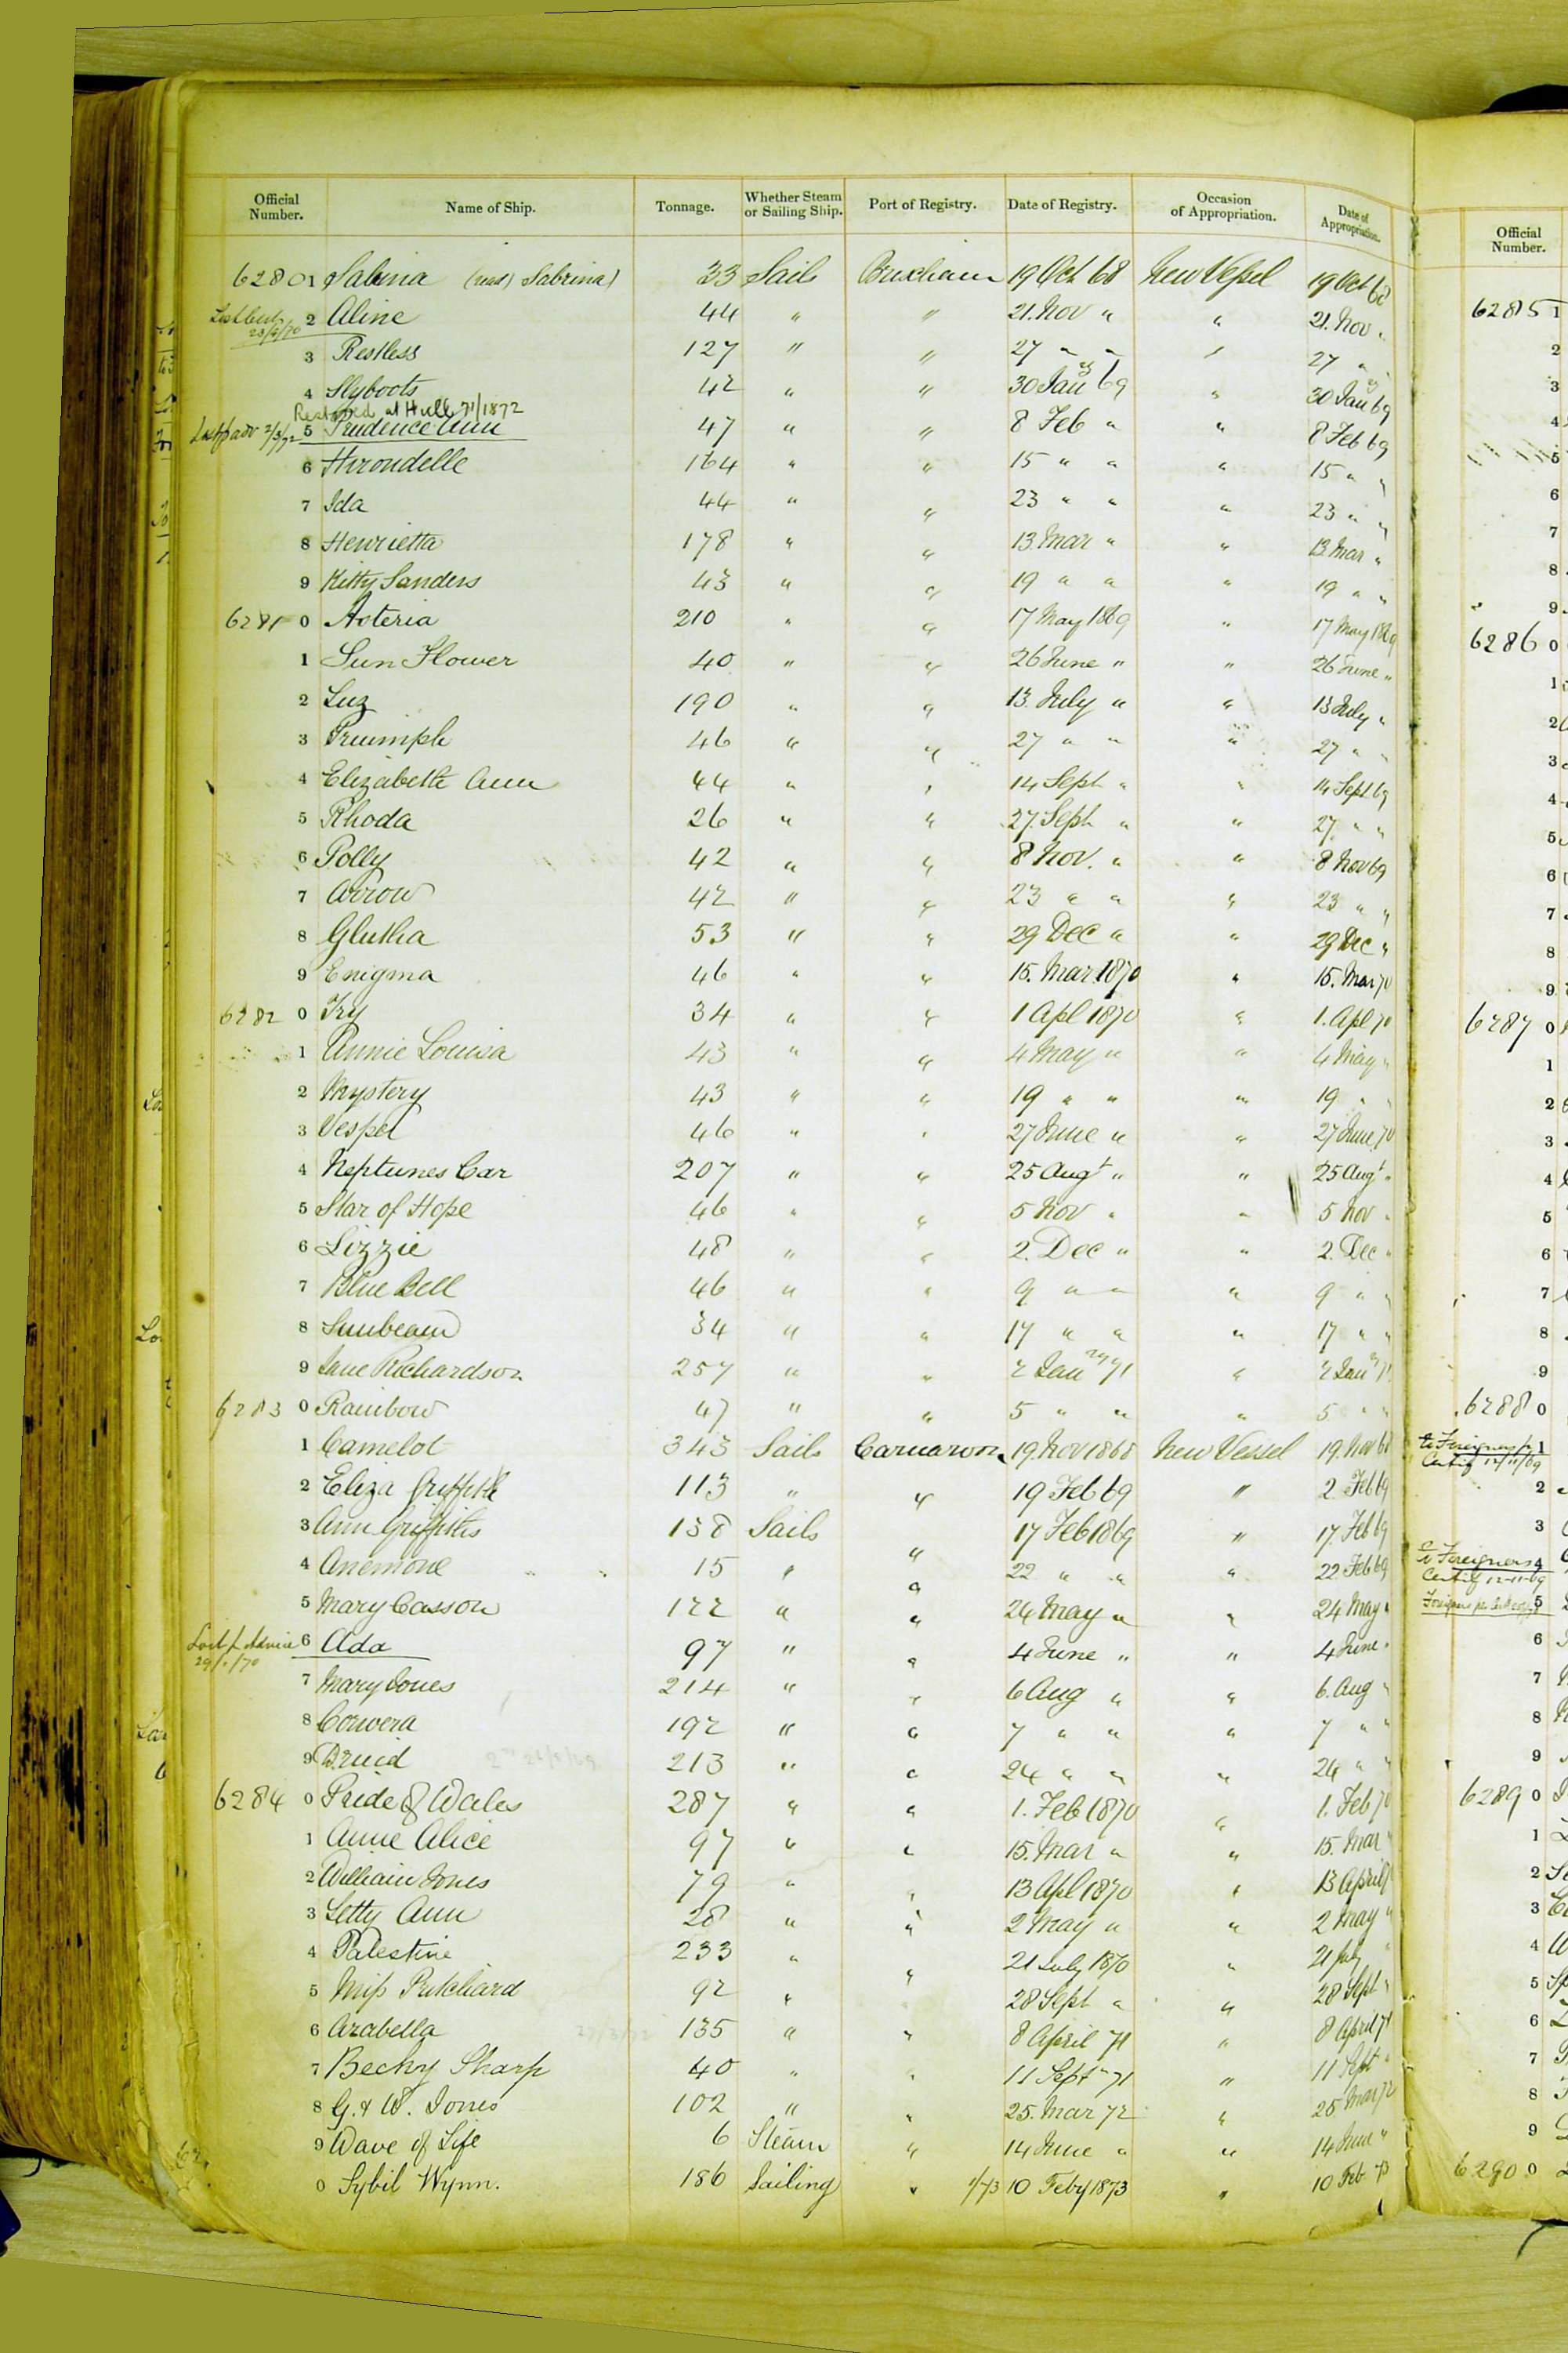 Official Number. Name of Ship. Tonnage. Whether Steam or Sailing Ship. Port of Registry. Date of Registry. Occasion of Appropriation. Date of Appropriation.
62801 Sabina (read) Sabrina) 33 Sails Brixham 19 Oct 68 New Vessel 19 Oct 68
2 Aline 44 " " 21. Nov " " 21. Nov "
3 Restless 127 " " 27 " " " 27 "
4 Slyboots 42 " " 30 Jan 69 " 30 Jan 69
Restored at Hull 71/1872
5 Prudence Ann 47 " " 8 Feb " " 8 Feb 69
6 Hirondelle 164 " " 15 " " " 15 " "
7 Ida 44 " " 23 " " " 23 " "
8 Henrietta 178 " " 13. Mar " " 13. Mar "
9 Kitty Sanders 43 " " 19 " " " 19 " "
6281 0 Asteria 210 " " 17 May 1869 " 17 May 1869
1 Sun Flower 40 " " 26 June " " 26 June "
2 Luz 190 " " 13. July " " 13 July "
3 Triumph 46 " " 27 " " " 27 " "
4 Elizabeth Ann 44 " " 14 Sept " " 14 Sept 69
5 Rhoda 26 " " 27. Sept " " 27. " "
6 Polly 42 " " 8 Nov. " " 8 Nov 69
7 Arrow 42 " " 23 " " " 23 " "
8 Glutha 53 " " 29 Dec " " 29 Dec "
9 Enigma 46 " " 15. Mar. 1870 " 15. Mar 70
6282 0 Try 34 " " 1 Apl 1870 " 1. Apl 70
1 Annie Louisa 43 " " 4 May " " 4 May "
2 Mystery 43 " " 19 " " " 19 " "
3 Vesper 46 " " 27 June " " 27 June 70
4 Neptunes Car 207 " " 25 Augt " " 25 Augt "
5 Star of Hope 46 " " 5 Nov " " 5 Nov "
6 Lizzie 48 " " 2. Dec " " 2. Dec "
7 Blue Bell 46 " " 9 " " " 9 " "
8 Sunbeam 34 " " 17 " " " 17 " "
9 Jane Richardson 257 " " 2 Jan 71 " 2 Jan 71
6283 0 Rainbow 47 " " 5 " " " 5 " "
1 Camelot 343 Sails Carnarvon 19. Nov 1868 New Vessel 19. Nov 68
2 Eliza Griffith 113 " " 19 Feb 69 " 2 Feb 69
3 Ann Griffiths 138 Sails " 17 Feb 1869 " 17. Feb 69
4 Anemone 15 " " 22 " " " 22 Feb 69
5 Mary Casson 122 " " 24 May " " 24 May "
Lost p Advice
6 Ada 97 " " 4 June " " 4 June "
7 Mary Jones 214 " " 6 Aug " " 6. Aug "
8 Corwera 192 " " 7 " " " 7 " "
9 Druid 213 " " 24 " " " 24 " "
6284 0 Pride of Wales 287 " " 1. Feb 1870 " 1. Feb 70
1 Anne Alice 97 " " 15. Mar " " 15. Mar "
2 William Jones 79 " " 13 Apl 1870 " 13 April
3 Letty Ann 28 " " 2 May " " 2 May "
4 Palestine 233 " " 21 July 1870 " 21 July "
5 Miss Pritchard 92 " " 28 Sept " " 28 Sept "
6 Arabella 135 " " 8 April 71 " 8 April 71
7 Becky Sharp 40 " " 11 Sept 71 " 11 Sept "
8 G. & W. Jones 102 " " 25. Mar 72 " 25 Mar 72
9 Wave of Life 6 Steam " 14 June " " 14 June "
0 Sybil Wynn. 186 Sailing " 1/73 10 Feby 1873 " 10 Feb 73
Official Number.
6285 1
2
3
4
5
6
7
8
9
6286 0
1
2
3
4
5
6
7
8
9
6287 0
1
2
3
4
5
6
7
8
9
6288 0
1
2
3
to Foreigners 4
5
6
7
8
9
6289 0
1
2
3
4
5
6
7
8
9
6290 0